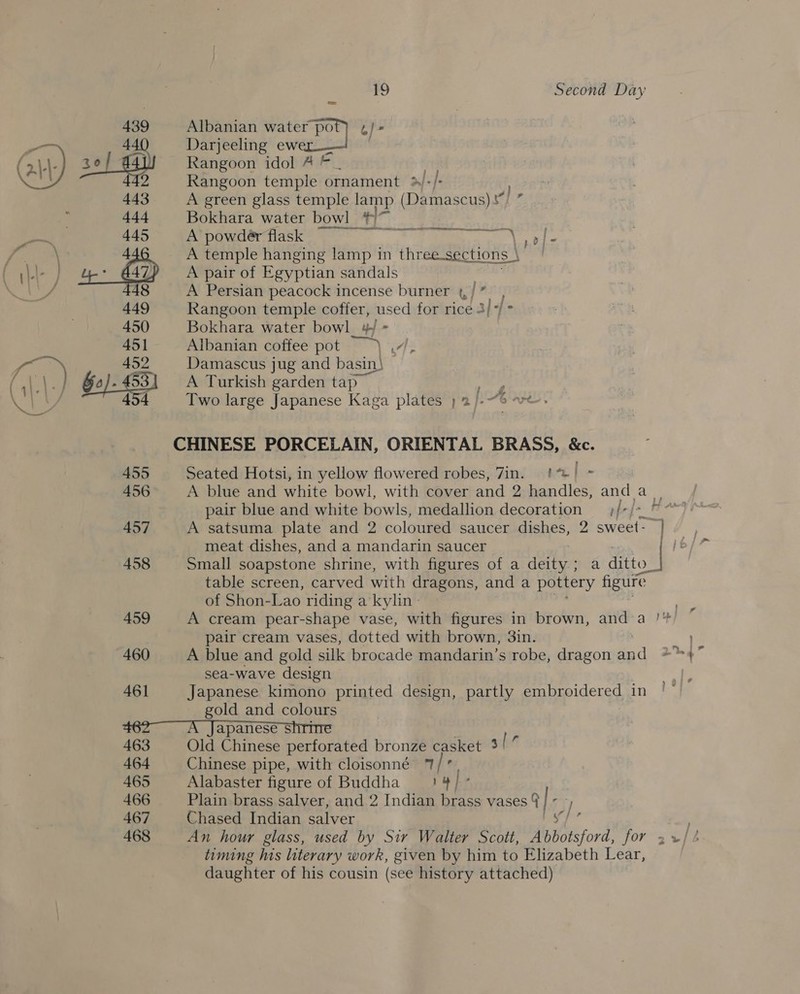 19 Second Day
439 Albanian water pot 6/-
440 Darjeeling ewer
30/ 441 Rangoon idol
442 Rangoon temple ornament 2/-/-
443 A green glass temple lamp (Damascus) 5/-
444 Bokhara water bowl 4/-
445 A powder flask
446 A temple hanging lamp in three sections
447 A pair of Egyptian sandals
448 A Persian peacock incense burner
449 Rangoon temple coffer, used for rice 3/-/-
450 Bokhara water bowl 4/-
451 Albanian coffee pot
452 Damascus jug and basin
60/- 453 A Turkish garden tap
454 Two large Japanese Kaga plates 12/-
CHINESE PORCELAIN, ORIENTAL BRASS, &c.
455 Seated Hotsi, in yellow flowered robes, 7in. 12/-
456 A blue and white bowl, with cover and 2 handles, and a
pair blue and white bowls, medallion decoration
457 A satsuma plate and 2 coloured saucer dishes, 2 sweet-
meat dishes, and a mandarin saucer 16/-
458 Small soapstone shrine, with figures of a deity; a ditto
table screen, carved with dragons, and a pottery figure
of Shon-Lao riding a kylin
459 A cream pear-shape vase, with figures in brown, and a 14/-
pair cream vases, dotted with brown, 3in.
460 A blue and gold silk brocade mandarin's robe, dragon and
sea-wave design
461 Japanese kimono printed design, partly embroidered in
gold and colours
462 A Japanese shrine
463 Old Chinese perforated bronze casket 3/-
464 Chinese pipe, with cloisonné 7/-
465 Alabaster figure of Buddha 14/-
466 Plain brass salver, and 2 Indian brass vases 9/-
467 Chased Indian salver
468 An hour glass, used by Sir Walter Scott, Abbotsford, for
timing his literary work, given by him to Elizabeth Lear,
daughter of his cousin (see history attached)